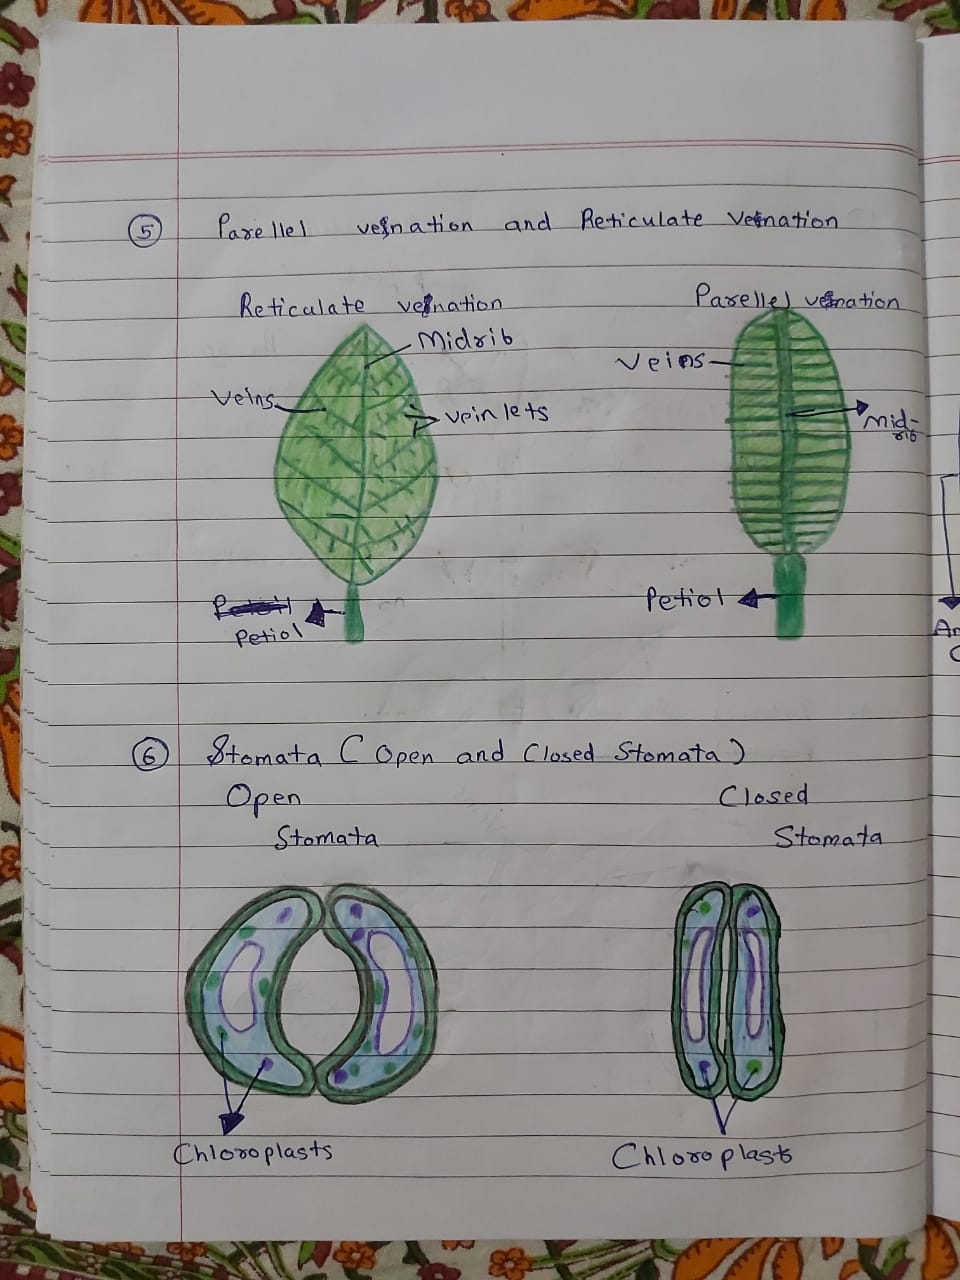 5 Parellel venation and Reticulate Venation
Reticulate venation
Parellel venation
Midrib
Veins
Veins
vein lets
Mid-
rib
Petiol
Petiol
An
C
6 Stomata ( Open and Closed Stomata )
Open
Stomata
Closed
Stomata
Chloroplasts
Chloroplasts